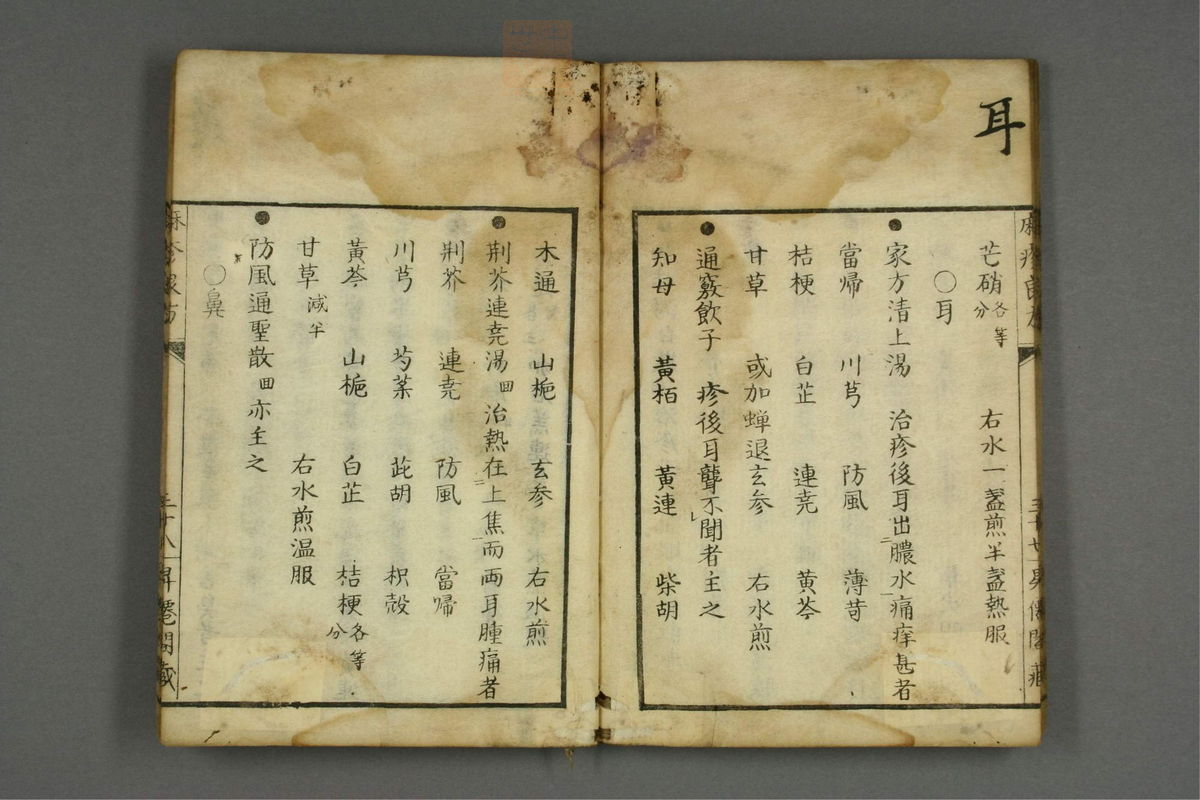 耳
芒硝各等分 右水一盞煎半盞熱服
○耳
●家方清上湯 治疹後耳出膿水痛痒甚者
當歸 川芎 防風 薄苛
桔梗 白芷 連堯 黃芩
甘草 或加蝉退玄参 右水煎
●通竅飲子 疹後耳聾不聞者主之
知母 黃栢 黃連 柴胡
木通 山梔 玄参 右水煎
●荆芥連堯湯回 治熱在上焦而両耳腫痛者
荆芥 連堯 防風 當歸
川芎 芍薬 茈胡 枳殼
黃芩 山梔 白芷 桔梗各等分
甘草減半 右水煎温服
●防風通聖散回 亦主之
○鼻